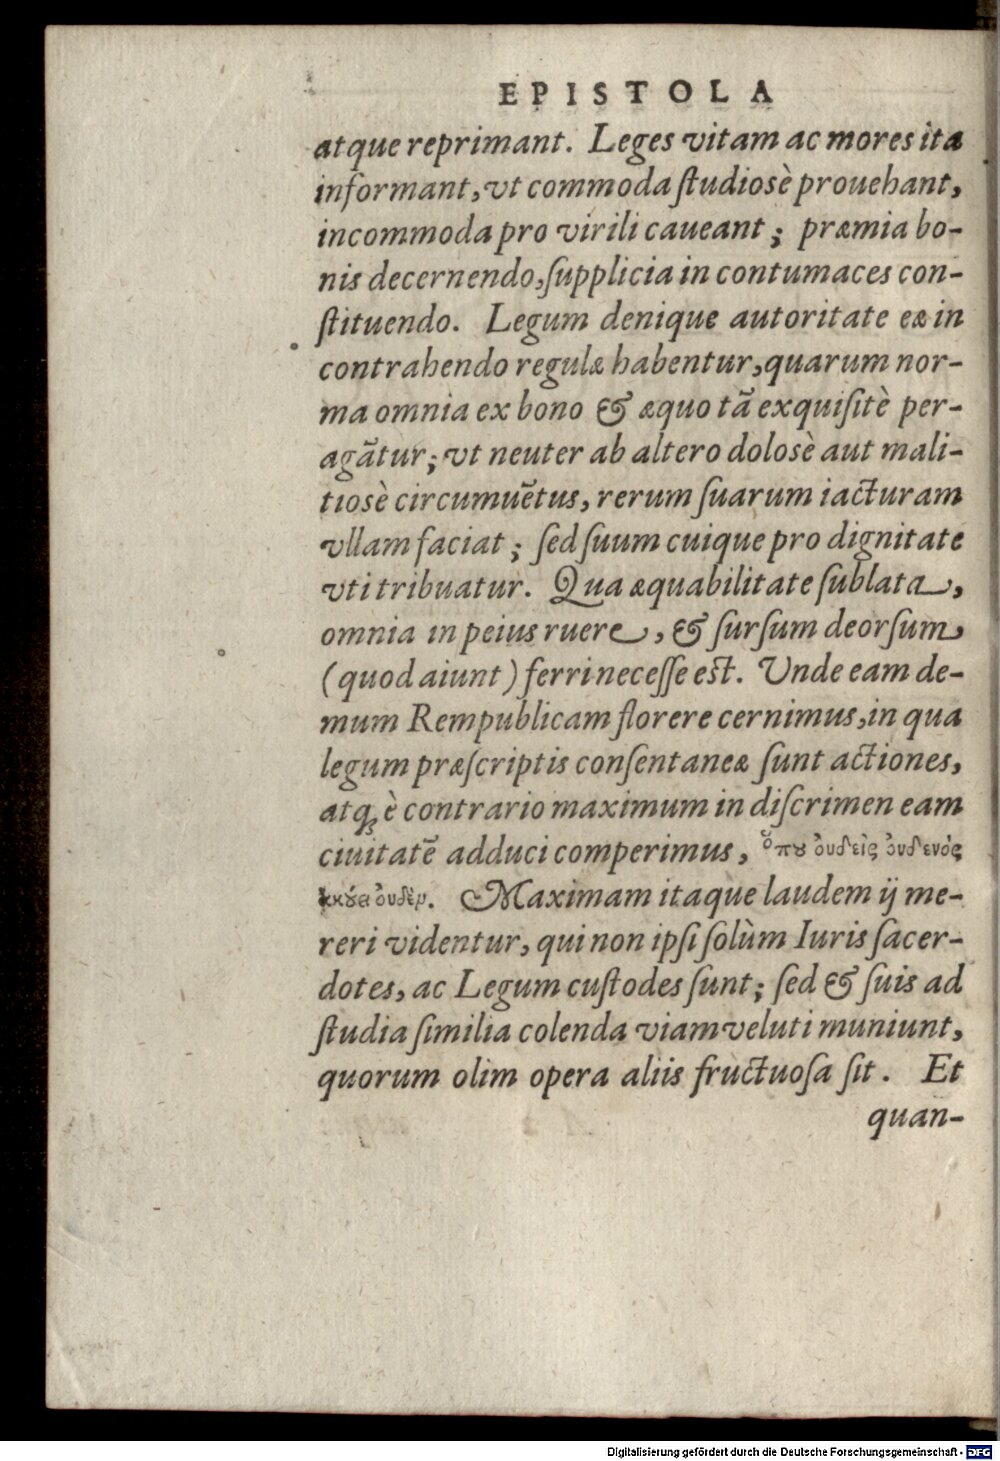 EPISTOLA
atque reprimant. Leges vitam ac mores ita
informant, vt commoda ſtudiosè prouehant,
incommoda pro virili caueant; præmia bo-
nis decernendo, ſupplicia in contumaces con-
ſtituendo. Legum denique autoritate eæ in
contrahendo regulæ habentur, quarum nor-
ma omnia ex bono & æquo tā exquiſitè per-
agātur; vt neuter ab altero dolosè aut mali-
tiosè circumuētus, rerum ſuarum iacturam
vllam faciat; ſed ſuum cuique pro dignitate
vti tribuatur. Qua æquabilitate ſublata,
omnia in peius ruere, & ſurſum deorſum
(quod aiunt) ferri neceſſe est. Unde eam de-
mum Rempublicam florere cernimus, in qua
legum præſcriptis conſentaneæ ſunt actiones,
atq; è contrario maximum in diſcrimen eam
ciuitatē adduci comperimus, ὅπου ὀυδεὶς ὀυδενός
ἀκούει ὀυδέν. Maximam itaque laudem ij me-
reri videntur, qui non ipſi ſolùm Iuris ſacer-
dotes, ac Legum cuſtodes ſunt; ſed & ſuis ad
ſtudia ſimilia colenda viam veluti muniunt,
quorum olim opera aliis fructuoſa ſit. Et
quan-
Digitalisierung gefördert durch die Deutsche Forschungsgemeinschaft - DFG